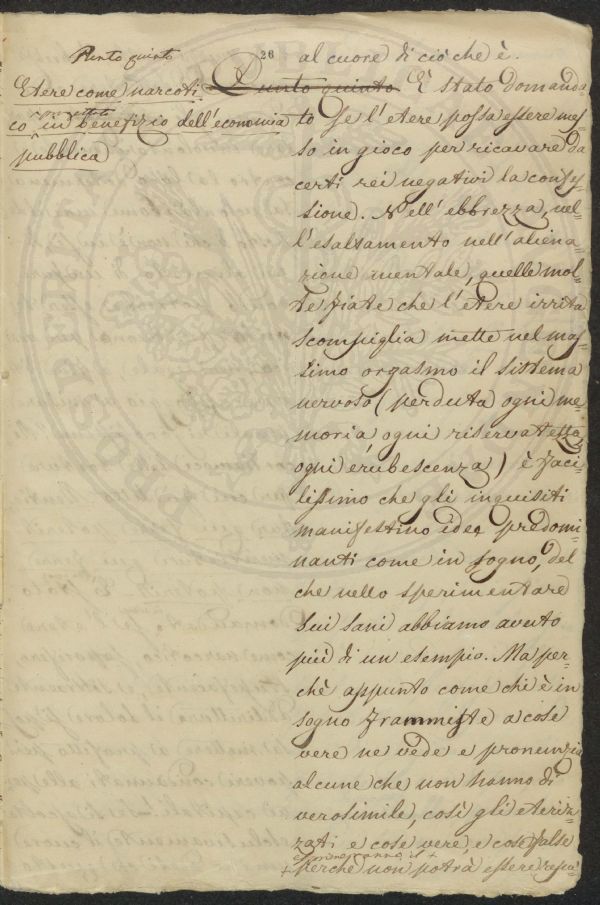 Punto quinto
26
Etere come narcoti-
co in rispetto benefizio dell'economia
pubblica
al cuore di ciò che è.
Punto quinto È stato domanda
to se l'etere possa essere mes=
so in gioco per ricavare da
certi rei negativi la confes=
sione. Nell'ebbrezza, nel=
l'esaltamento nell'aliena=
zione mentale, quelle mol=
te fiate che l'etere irrita
scompiglia mette nel mas=
simo orgasmo il sistema
nervoso (perduta ogni me=
moria, ogni riservatezza,
ogni erubescenza) è faci=
lissimo che gli inquisiti
manifestino idee predomi=
nanti come in sogno, del
che nello sperimentare
sui sani abbiamo avuto
più di un esempio. Ma per=
chè appunto come chi è in
sogno frammiste a cose
vere ne vede e pronunzia
alcune che non hanno di
verosimile, così gli eteriz=
zati e cose vere, e cose false
perchè non potrà essere repu=